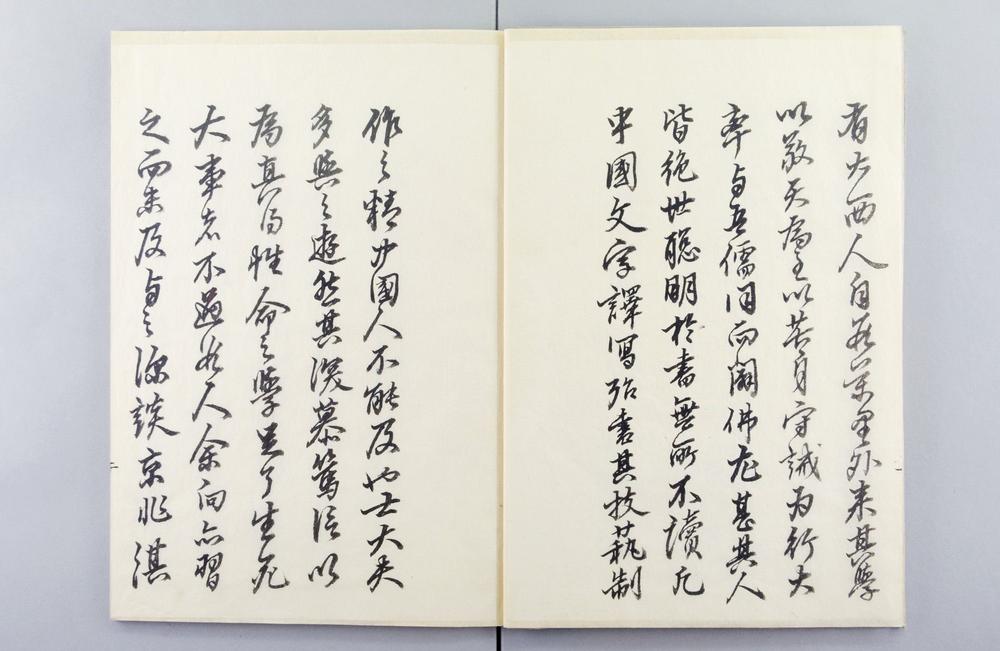 有大西人自數萬里外来其學
以敬天為主以苦身守誡为行大
率与吾儒同而闢佛尤甚其人
皆絶世聡明於書無所不讀凡
中國文字譯寫殆盡其技藝制
作之精中國人不能及也士大夫
多與之遊然其深慕篤信以
為真得性命之學足了生死
大事者不過數人余向亦習
之而未及与之深談京兆淇